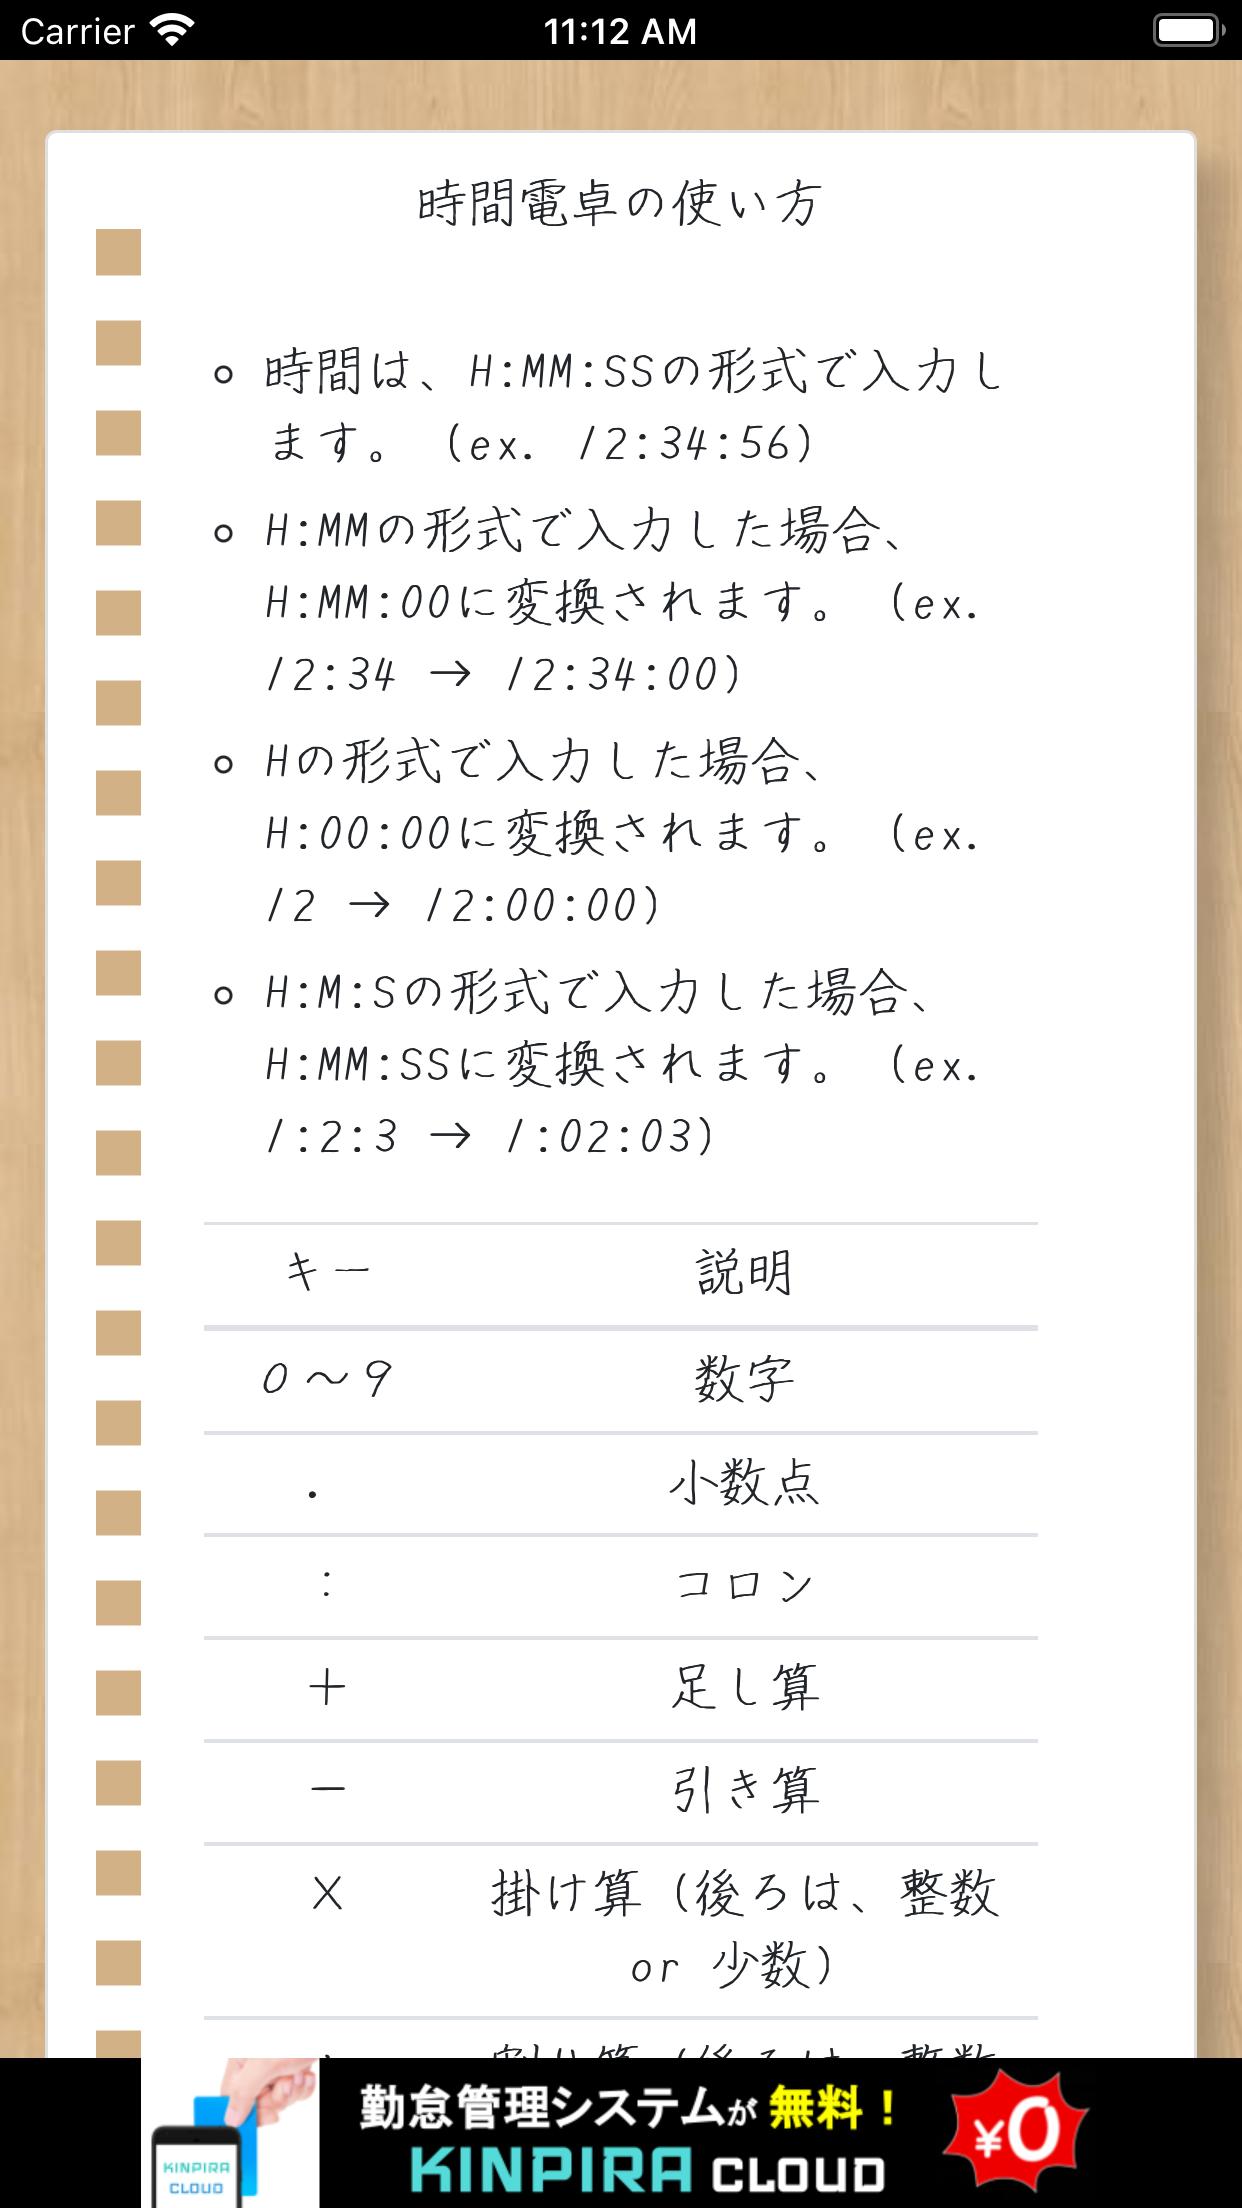 Carrier 11:12 AM
時間電卓の使い方
時間は、H:MM:SSの形式で入力し
ます。 (ex. 12:34:56)
H:MMの形式で入力した場合、
H:MM:00に変換されます。 (ex.
12:34 → 12:34:00)
Hの形式で入力した場合、
H:00:00に変換されます。 (ex.
12 → 12:00:00)
H:M:Sの形式で入力した場合、
H:MM:SSに変換されます。 (ex.
1:2:3 → 1:02:03)
キー 説明
0～9 数字
. 小数点
: コロン
+ 足し算
− 引き算
× 掛け算 (後ろは、整数
or 少数)
割り算 (後ろは、整数
勤怠管理システムが 無料！
KINPIRA CLOUD
¥0
KINPIRA
CLOUD